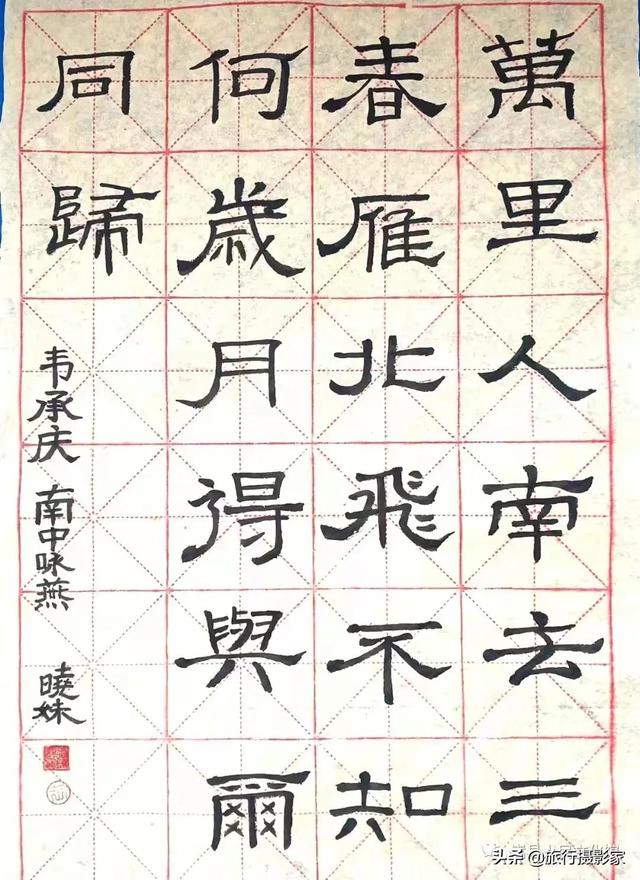 萬里人南去三
春雁北飛不知
何歲月得與爾
同歸
韦承庆 南中咏燕 曉妹
头条 @旅行摄影家